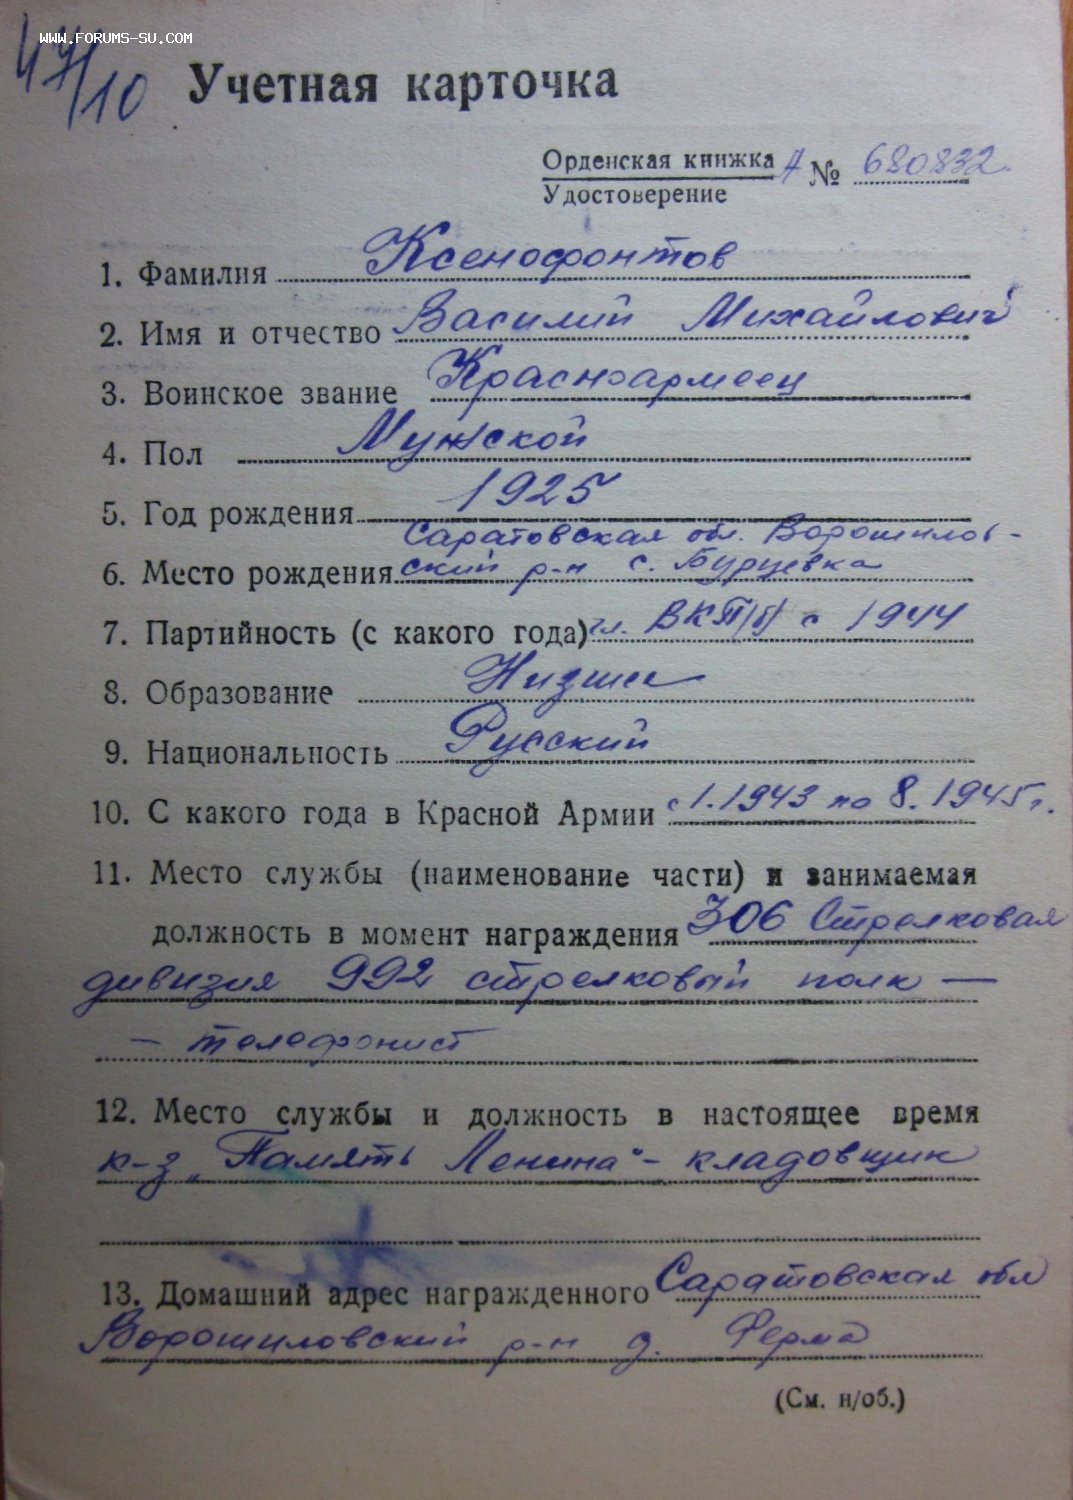 WWW.FORUMS-SU.COM
47/10
Учетная карточка
Орденская книжка А № 680832
Удостоверение
1. Фамилия Ксенофонтов
2. Имя и отчество Василий Михайлович
3. Воинское звание Красноармеец
4. Пол Мужской
5. Год рождения 1925
Саратовская обл. Ворошилов-
6. Место рождения ский р-н с. Бурцевка
7. Партийность (с какого года) чл. ВКП(б) с 1944
8. Образование Низшее
9. Национальность Русский
10. С какого года в Красной Армии с 1.1943 по 8.1945г.
11. Место службы (наименование части) и занимаемая
должность в момент награждения 306 Стрелковая
дивизия 992 стрелковый полк —
— телефонист
12. Место службы и должность в настоящее время
к-з „Память Ленина" - кладовщик
13. Домашний адрес награжденного Саратовская обл
Ворошиловский р-н д. Ферма
(См. н/об.)